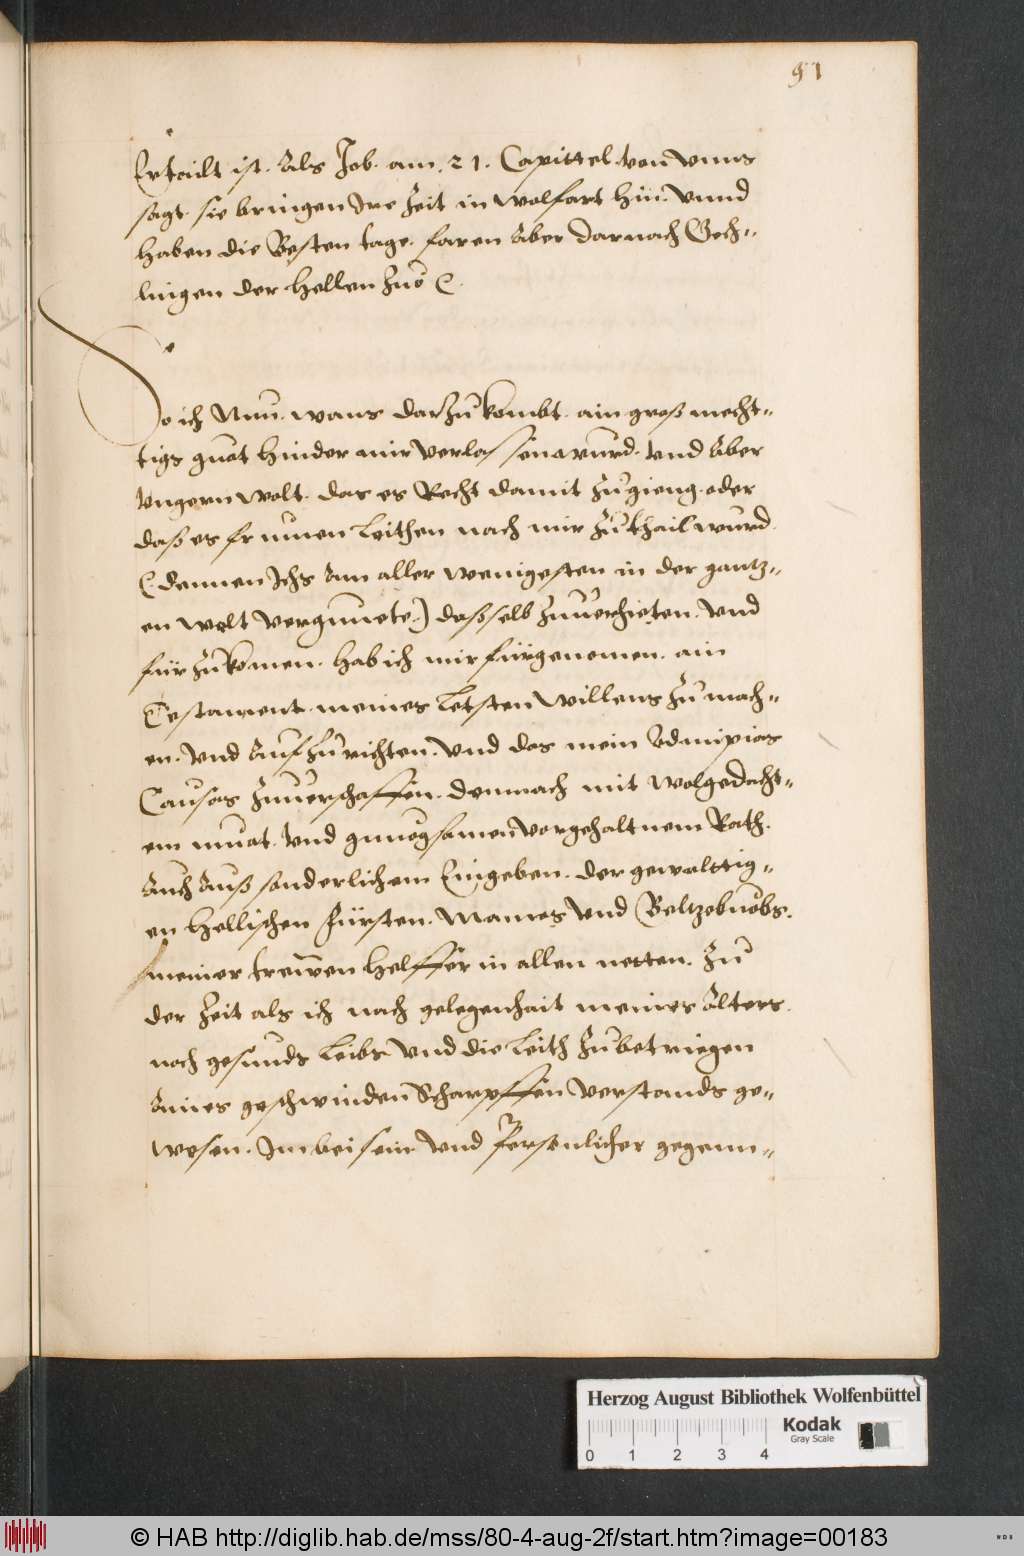 91
Erthailt ist. Als Job. am. 21. Capittel. von Unns
sagt. sie bringen Ire Zeit in wolfart hin. Unnd
haben die Besten tage. faren Aber darnach Gech=
lingen der hellen Zuo
So ich Nun. wans darzu kombt. ain groß mecht=
tigs guet hinder mir verlassen wurd. Und Aber
Ungern wolt. das es Recht damit zugieng. oder
daß es frumen leithen nach mir zuthail wurd.
(dennen Ichs Am aller wenigesten in der gantz=
en welt vergunnete) dasselb Und
fürzukomen. hab ich mir fürgenomen. ain
Testament. meines letsten willens zu mach=
en. Und Aufzurichten. Und das mein
Causas Zuuerschaffen. demnach mit wolgedacht=
em muat. Und gnuegsamen vorgehaltnem Rath.
Auch Auß sonderlichem Eingeben. der gewalttig=
en hellischen Fürsten. Mames Und Beltzebuobs.
meiner trewen helffer in allen netten. Zu
der Zeit als ich nach gelegenhait meines Alters.
noch gesunds leibs Und die leith Zubetriegen
Aines geschwinden Scharpffen verstands ge=
wesen. Im beisein Und Persenlicher gegenn=
Herzog August Bibliothek Wolfenbüttel
Kodak
Gray Scale
0 1 2 3 4
© HAB http://diglib.hab.de/mss/80-4-aug-2f/start.htm?image=00183